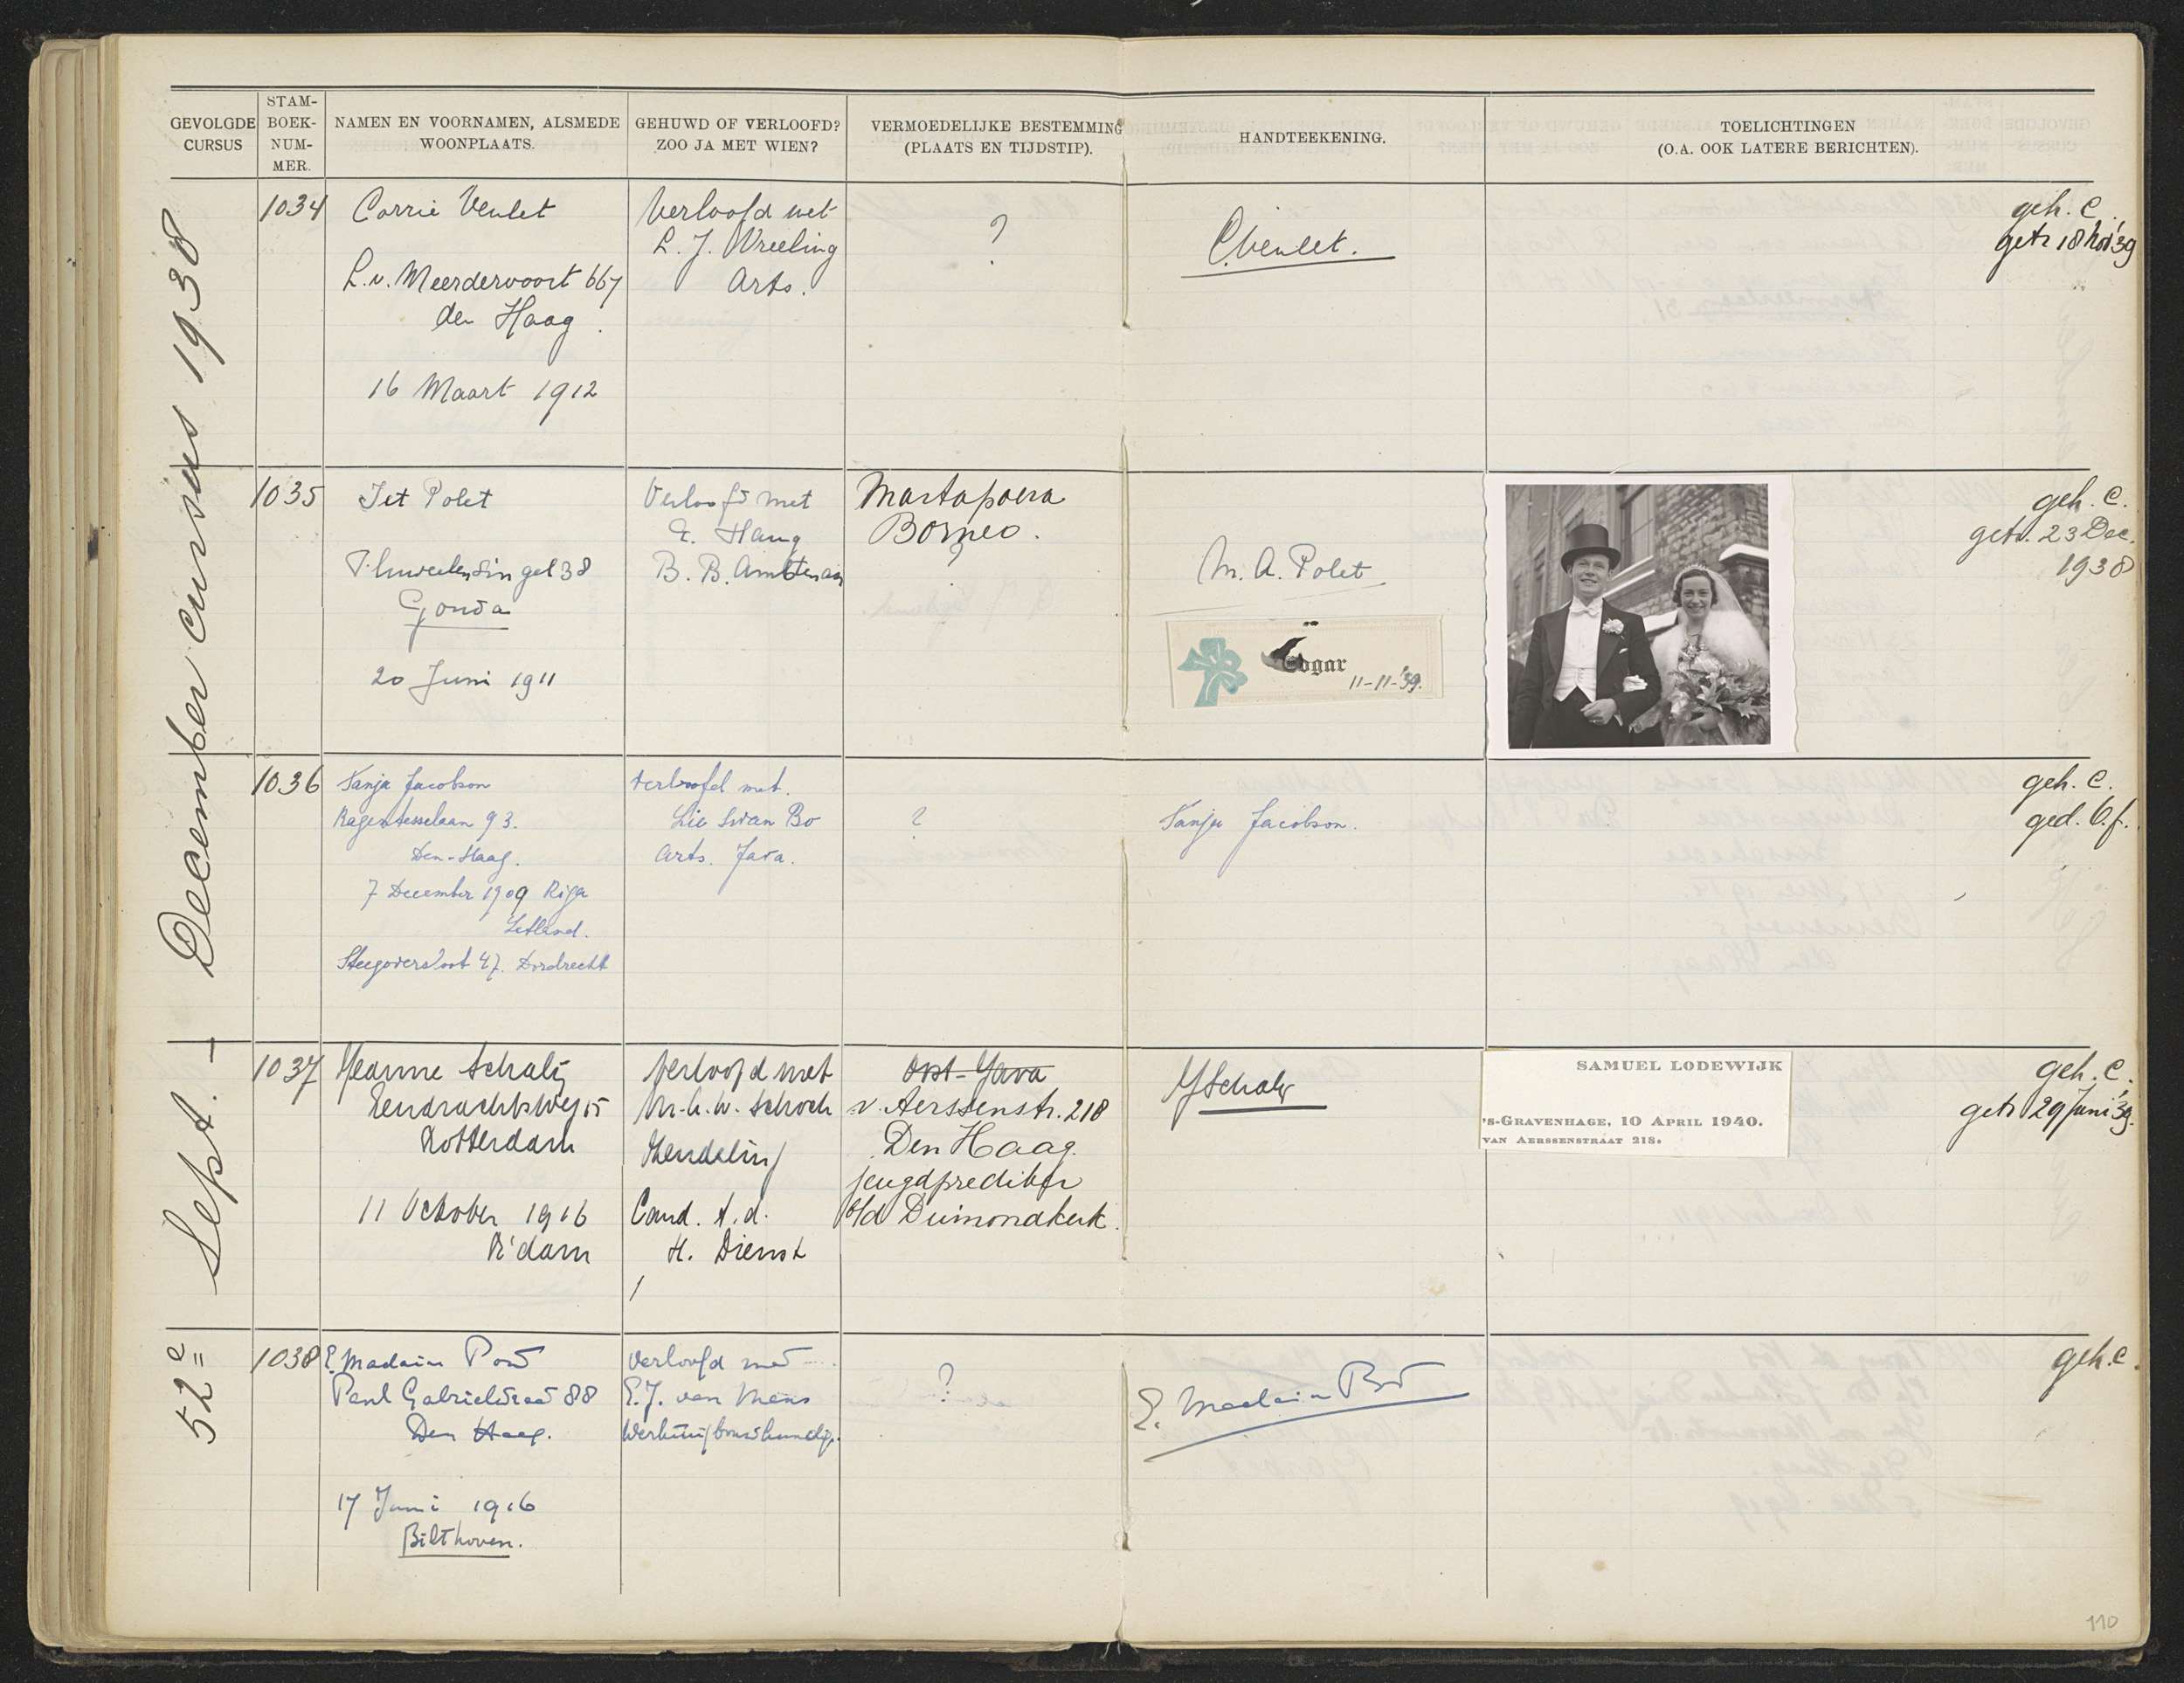 GEVOLGDE
CURSUS
STAM-
BOEK-
NUM-
MER.
NAMEN EN VOORNAMEN, ALSMEDE
WOONPLAATS.
GEHUWD OF VERLOOFD?
ZOO JA MET WIEN?
VERMOEDELIJKE BESTEMMING
(PLAATS EN TIJDSTIP).
HANDTEEKENING.
TOELICHTINGEN
(O.A. OOK LATERE BERICHTEN).
52e Sept. - December cursus 1938
1034
Corrie Venlet
L.v. Meerdervoort 667
den Haag.
16 Maart 1912
Verloofd met
L. J. Vreeling
Arts.
?
C. Venlet.
geh. C.
getr 18 Nov '39
1035
Jet Polet
singel 38
Gouda
20 Juni 1911
Verloofd met
E. Haug
B. B. Ambtenaar
Martapoera
Borneo.
?
M. A. Polet
Edgar
11-11-'39.
geh. C.
getr. 23 Dec.
1938
1036
Tanja Jacobson
laan 93.
Den-Haag.
7 December 1909 Riga
Letland.
Steegoversloot 47. Dordrecht
Verloofd met.
Lie Swan Bo
Arts. Java.
?
Tanja Jacobson.
geh. C.
ged. b.f.
1037
Jeanne Schalij
Eendrachtsweg 15
Rotterdam
11 October 1916
R'dam
Verloofd met
Schoch
Zendeling
Cand. t. d.
H. Dienst
Oost-Java
v. Aerssenstr. 218
Den Haag.
jeugdprediker
b/d Duinoordkerk.
J Schalij
SAMUEL LODEWIJK
'S-GRAVENHAGE, 10 APRIL 1940.
VAN AERSSENSTRAAT 218.
geh. C.
getr 29 Juni '39.
1038
E. Madlain Pot
Paul Gabrielstraat 88
Den Haag.
17 Juni 1916
Bilthoven.
Verloofd met
E. J. van Mens
Werktuigbouwkundige.
?
E. Madlain Pot
geh. C.
110